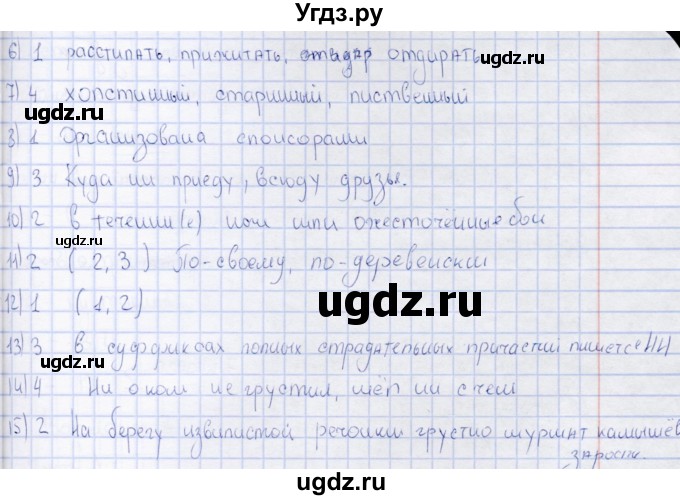 Угдз.ру
6) 1 расстилать, прижигать, отдирать
ugdz.ru
ugdz.ru
7) 4 холстинный, старинный, лиственный
ugdz.ru
8) 1 Организована спонсорами
9) 3 Куда ни приеду, всюду друзья.
ugdz.ru
10) 2 в течении(е) ночи шли ожесточённые бои
ugdz.ru
11) 2 (2, 3) По-своему, по-деревенски
ugdz.ru
12) 1 (1, 2)
ugdz.ru
13) 3 в суффиксах полных страдательных причастий пишется НН
ugdz.ru
14) 4 Ни о ком не грустил, шёл ни с чем
ugdz.ru
15) 2 На берегу извилистой речонки грустно шуршат камышёв
заросли.
ugdz.ru